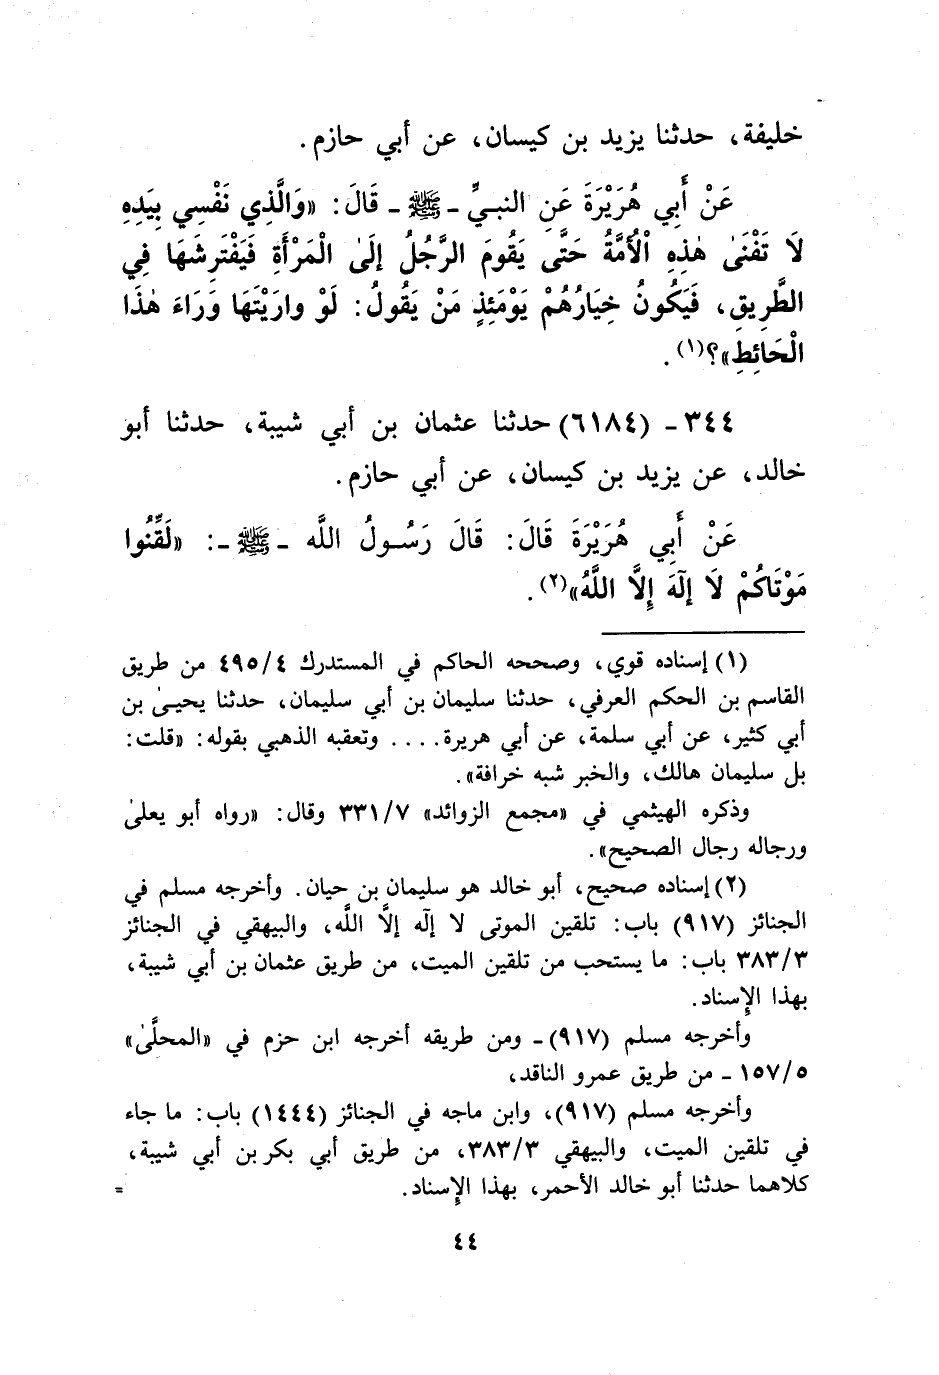 خليفة، حدثنا يزيد بن كيسان، عن أبي حازم.
عَنْ أَبِي هُرَيْرَةَ عَنِ النبيِّ ـ ﷺ ـ قَالَ: «وَالَّذِي نَفْسِي بِيَدِهِ
لَا تَفْنَىٰ هٰذِهِ الْأُمَّةُ حَتَّى يَقُومَ الرَّجُلُ إِلَىٰ الْمَرْأَةِ فَيَفْتَرِشَهَا فِي
الطَّرِيقِ، فَيَكُونُ خِيَارُهُمْ يَوْمَئِذٍ مَنْ يَقُولُ: لَوْ وارَيْتَهَا وَرَاءَ هٰذَا
الْحَائِطِ»؟(١).
٣٤٤ ـ (٦١٨٤) حدثنا عثمان بن أبي شيبة، حدثنا أبو
خالد، عن يزيد بن كيسان، عن أبي حازم.
عَنْ أَبِي هُرَيْرَةَ قَالَ: قَالَ رَسُولُ اللَّه ـ ﷺ ـ: «لَقِّنُوا
مَوْتَاكُمْ لَا إِلٰهَ إِلَّا اللَّهُ»(٢).
(١) إسناده قوي، وصححه الحاكم في المستدرك ٤٩٥/٤ من طريق
القاسم بن الحكم العرفي، حدثنا سليمان بن أبي سليمان، حدثنا يحيىٰ بن
أبي كثير، عن أبي سلمة، عن أبي هريرة.... وتعقبه الذهبي بقوله: «قلت:
بل سليمان هالك، والخبر شبه خرافة».
وذكره الهيثمي في «مجمع الزوائد» ٣٣١/٧ وقال: «رواه أبو يعلىٰ
ورجاله رجال الصحيح».
(٢) إسناده صحيح، أبو خالد هو سليمان بن حيان. وأخرجه مسلم في
الجنائز (٩١٧) باب: تلقين الموتى لا إلٰه إلَّا اللَّه، والبيهقي في الجنائز
٣٨٣/٣ باب: ما يستحب من تلقين الميت، من طريق عثمان بن أبي شيبة،
بهذا الإِسناد.
وأخرجه مسلم (٩١٧) ـ ومن طريقه أخرجه ابن حزم في «المحلَّىٰ»
١٥٧/٥ ـ من طريق عمرو الناقد،
وأخرجه مسلم (٩١٧)، وابن ماجه في الجنائز (١٤٤٤) باب: ما جاء
في تلقين الميت، والبيهقي ٣٨٣/٣، من طريق أبي بكر بن أبي شيبة،
كلاهما حدثنا أبو خالد الأحمر، بهذا الإِسناد. =
٤٤